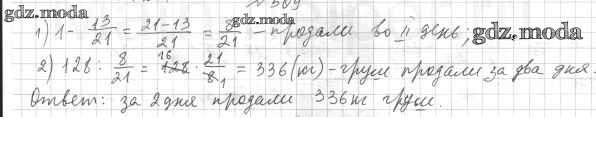 gdz.moda
№ 509
1) 1 - 13/21 = 21-13/21 = 8/21 - продали во II день; gdz.moda
gdz.moda
2) 128 : 8/21 = 128 16 · 21/8 1 = 336 (кг) - груш продали за два дня.
Ответ: за 2 дня продали 336 кг груш.